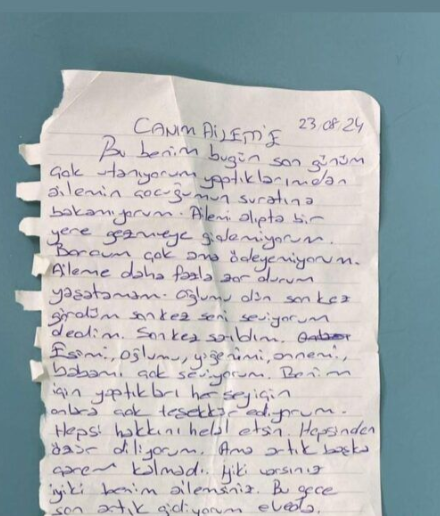 CANIM AİLEM'E 23/08/24
Bu benim bugün son günüm
çok utanıyorum yaptıklarımdan
ailemin çocuğumun suratına
bakamıyorum. Ailemi alıpta bir
yere gezmeye gidemiyorum.
Borcum çok ama ödeyemiyorum.
Aileme daha fazla zor durum
yaşatamam. Oğlumu dün son kez
gördüm son kez seni seviyorum
dedim. Son kez sarıldım.
Eşimi, oğlumu, yiğenimi, annemi,
babamı çok seviyorum. Benim
için yaptıkları her şey için
onlara çok teşekkür ediyorum.
Hepsi hakkını helal etsin. Hepsinden
özür diliyorum. Ama artık başka
çarem kalmadı. İyiki varsınız
iyiki benim ailemsiniz. Bu gece
son artık gidiyorum elveda.